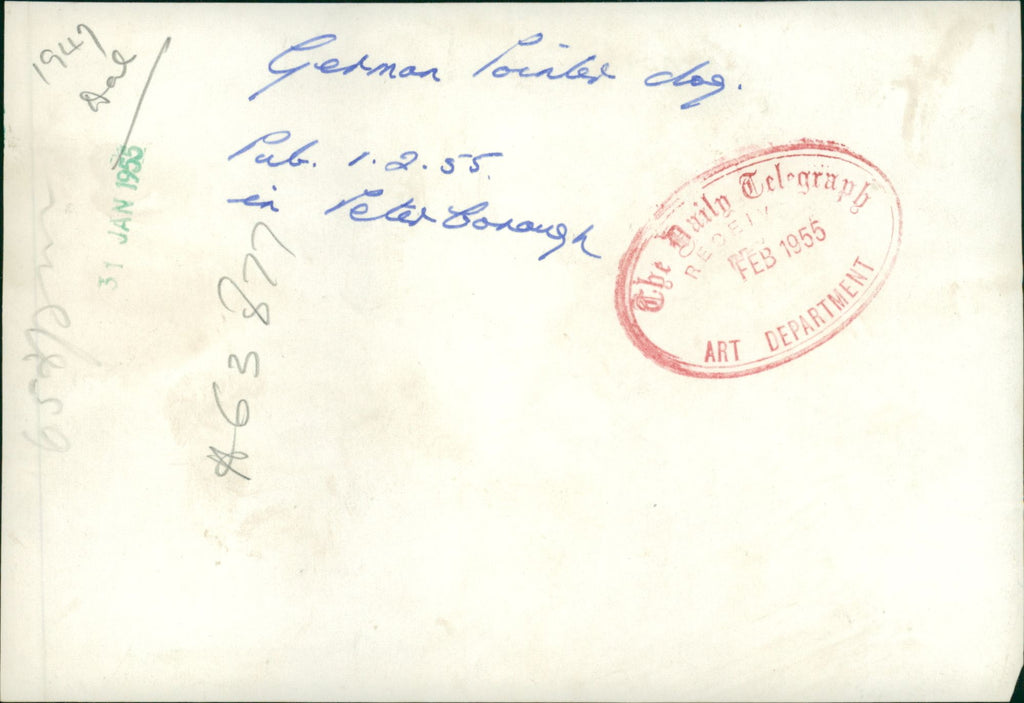 1947
German Pointer dog.
Pub. 1.2.55.
in Peterborough
31 JAN 1955
A63877
The Daily Telegraph
RECEIV
FEB 1955
ART DEPARTMENT